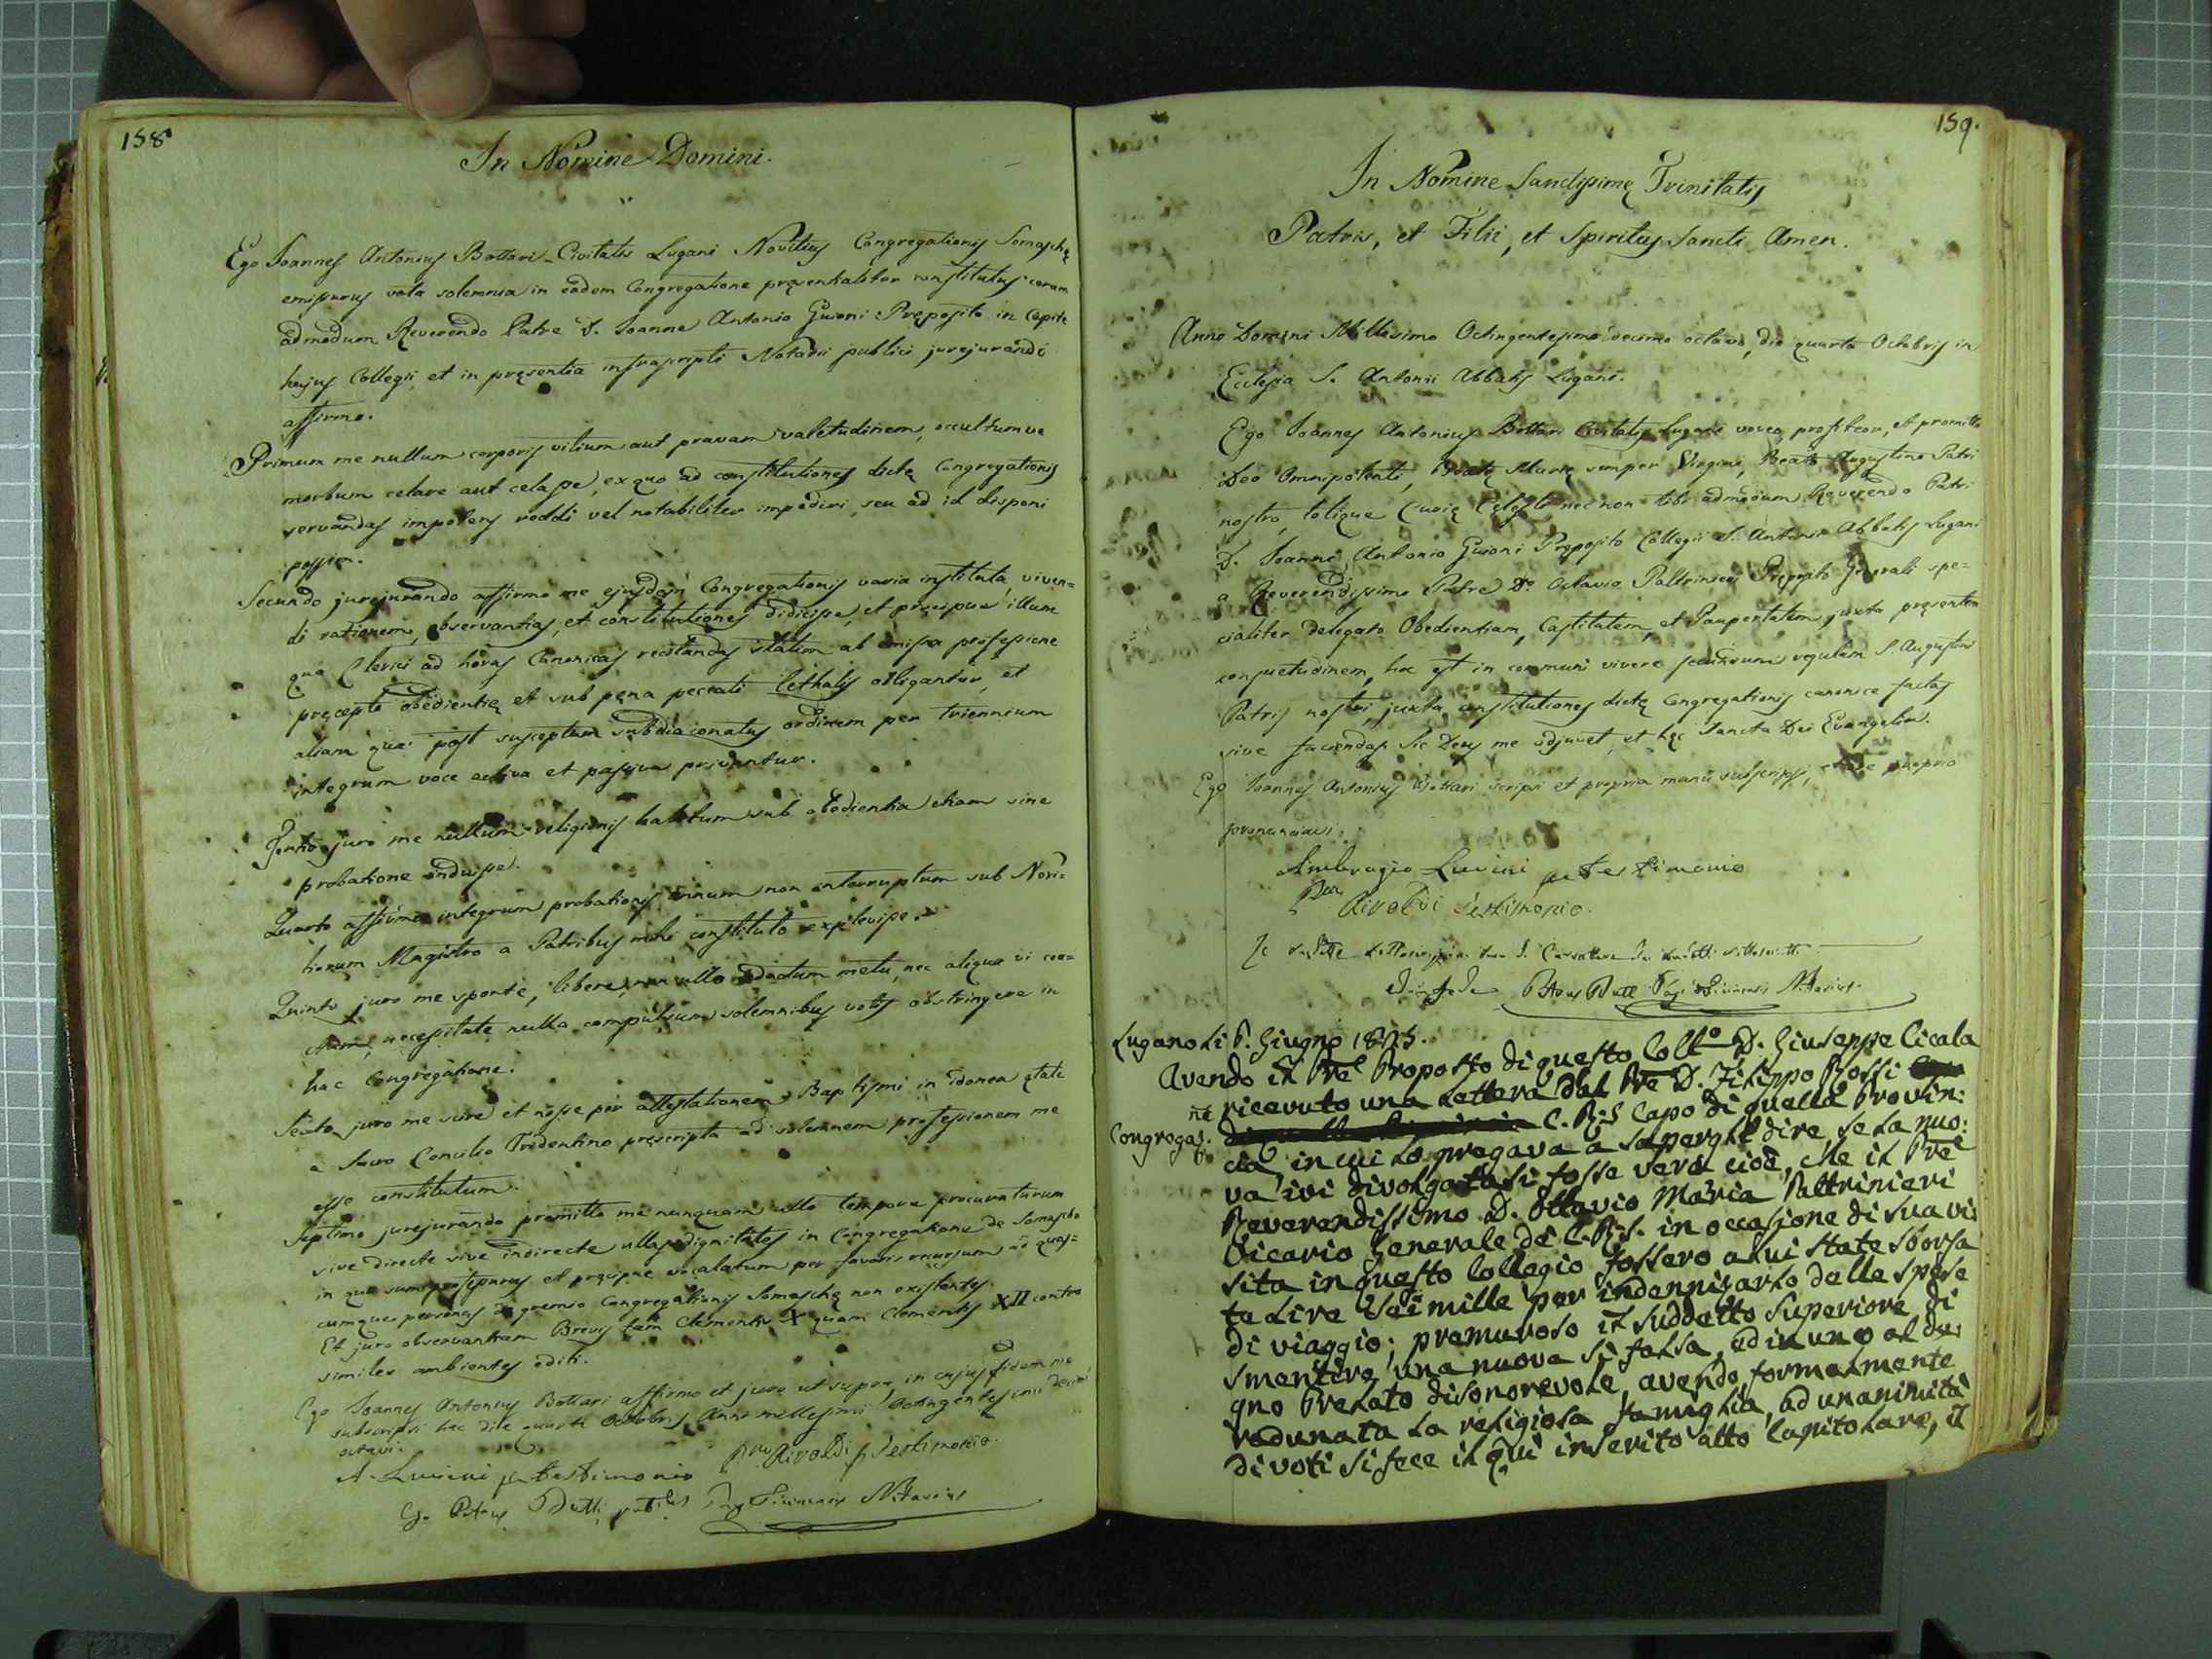 158
In Nomine Domini.
Ego Joannes Antonius Bottari Civitatis Lugani Novitius Congregationis Somaschę
emissurus vota solemnia in eadem Congregatione pręsentialiter constitutus coram
admodum Reverendo Patre D. Joanne Antonio Guioni Pręposito in Capite
hujus Collegii, et in pręsentia infrascripti Notarii publici jurejurando
affirmo.
Primum me nullum corporis vitium aut pravam valetudinem, occultumve
morbum celare aut celasse, ex quo ad constitutiones dictę Congregationis
servandas impotens reddi vel notabiliter impediri, seu ad id disponi
possim.
Secundo jurejurando affirmo me ejusdem Congregationis varia instituta, viven=
di rationem, observantias, et constitutiones didicisse, et pręcipue illam
qua Clerici ad horas Canonicas recitandas statim ab emissa professione
pręcepto obedientię et sub pęna peccati lethalis obligantur, et
aliam qua post susceptum subdiaconatus ordinem per triennium
integrum voce activa et passiva privantur.
Tertio juro me nullum religionis habitum sub obedientia etiam sine
probatione induisse.
Quarto affirmo integrum probationis annum non interruptum sub Novi=
tiorum Magistro a Patribus mihi constituto explevisse.
Quinto juro me sponte, libere, non ullo adactum metu, nec aliqua vi coa=
ctum, necessitate nulla compulsum solemnibus votis obstringere in
hac Congregatione.
Sexto juro me scire et nosse per attestationem Baptismi in idonea ętate
a Sacro Concilio Tridentino pręscripta ad solemnem professionem me
esse constitutum.
Septimo jurejurando promitto me nunquam ullo tempore procuraturum
sive directe sive indirecte ullas dignitates in Congregatione de Somascha
in qua sum professurus et pręcipue vocalatum per favoris recursum ad quas=
cumque personas de gremio Congregationis Somaschę non existentes.
Et juro observantiam Brevis tam Clementis X quam Clementis XII contra
similes ambientes editi.
Ego Joannes Antonius Bottari affirmo et juro ut supra, in cujus fidem me
subscripsi hac die quarta Octobris Anni millesimi Octingentesimi decimi
octavi.
A. Luvini per testimonio Rivoldi per Testimonio.
Notarius
159.
In Nomine Sanctissimę Trinitatis
Patris, et Filii, et Spiritus Sancti Amen.
Anno Domini Millesimo Octingentesimo decimo octavo, die quarta Octobris in
Ecclesia S. Antonii Abbatis Lugani.
Ego Joannes Antonius Bottari Civitatis Lugani voveo, profiteor, et promitto
Deo Omnipotenti, Beatę Marię semper Virgini, Beato Augustino Patri
nostro, totique Curię Cęlesti nec non tibi admodum Reverendo Patri
D. Joanni Antonio Guioni Pręposito Collegii S. Antonii Abbatis Lugani
a Reverendissimo Patre D. Octavio Paltrinieri Pręposito Generali spe=
cialiter delegato Obedientiam, Castitatem, et Paupertatem juxta pręsentem
consuetudinem, hoc est in communi vivere secundum regulam S. Augustini
Patris nostri, juxta constitutiones dictę Congregationis canonice factas
sive faciendas. Sic Deus me adjuvet, et hęc Sancta Dei Evangelia.
Ego Joannes Antonius Bottari scripsi et propria manu subscripsi, et ore proprio
pronunciavi.
Ambrogio Luvini per testimonio
Rivoldi Testimonio.
Notarius.
Lugano Li Giugno
Avendo il Pre Proposto di questo Collo D. Giuseppe Cicala
ricevuto una Lettera dal Pre D. Filippo Rossi
ne
Congregaz. C.R.S Capo di quella Provin:
cia, in cui Lo pregava a Sapergli dire, se La nuo:
va ivi divolgatasi fosse vera cioè, che il Pre
Reverendissimo D. Ottavio Maria Paltrinieri
Vicario Generale de C.R.S. in occasione di sua vi:
sita in questo Collegio fossero a Lui state sborsa
te Lire sei mille per indennizarlo delle spese
di viaggio; premuroso il suddetto Superiore di
smentire una nuova sì falsa, ed in uno al de:
gno Prelato disonorevole, avendo formalmente
radunata La religiosa famiglia, ad unanimità
di voti si fece il quì inserito atto Capitolare, il